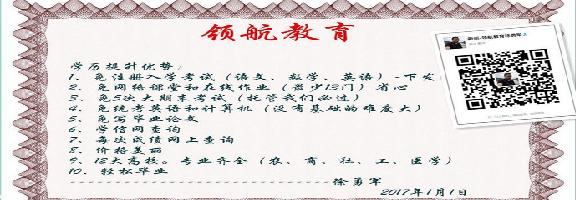 领航教育
学历提升优势：
1、免注册入学考试（语文、数学、英语）-下发
2、免网络课堂和在线作业（最少12门）省心
3、免5次大期末考试（托管我们必过）
4、免统考英语和计算机（没有基础的难度大）
5、免写毕业论文
6、学信网查询
7、每次成绩网上查询
8、价格美丽
9、12大高校。专业齐全（农、商、社、工、医学）
10、轻松毕业
徐勇军
2017年1月1日